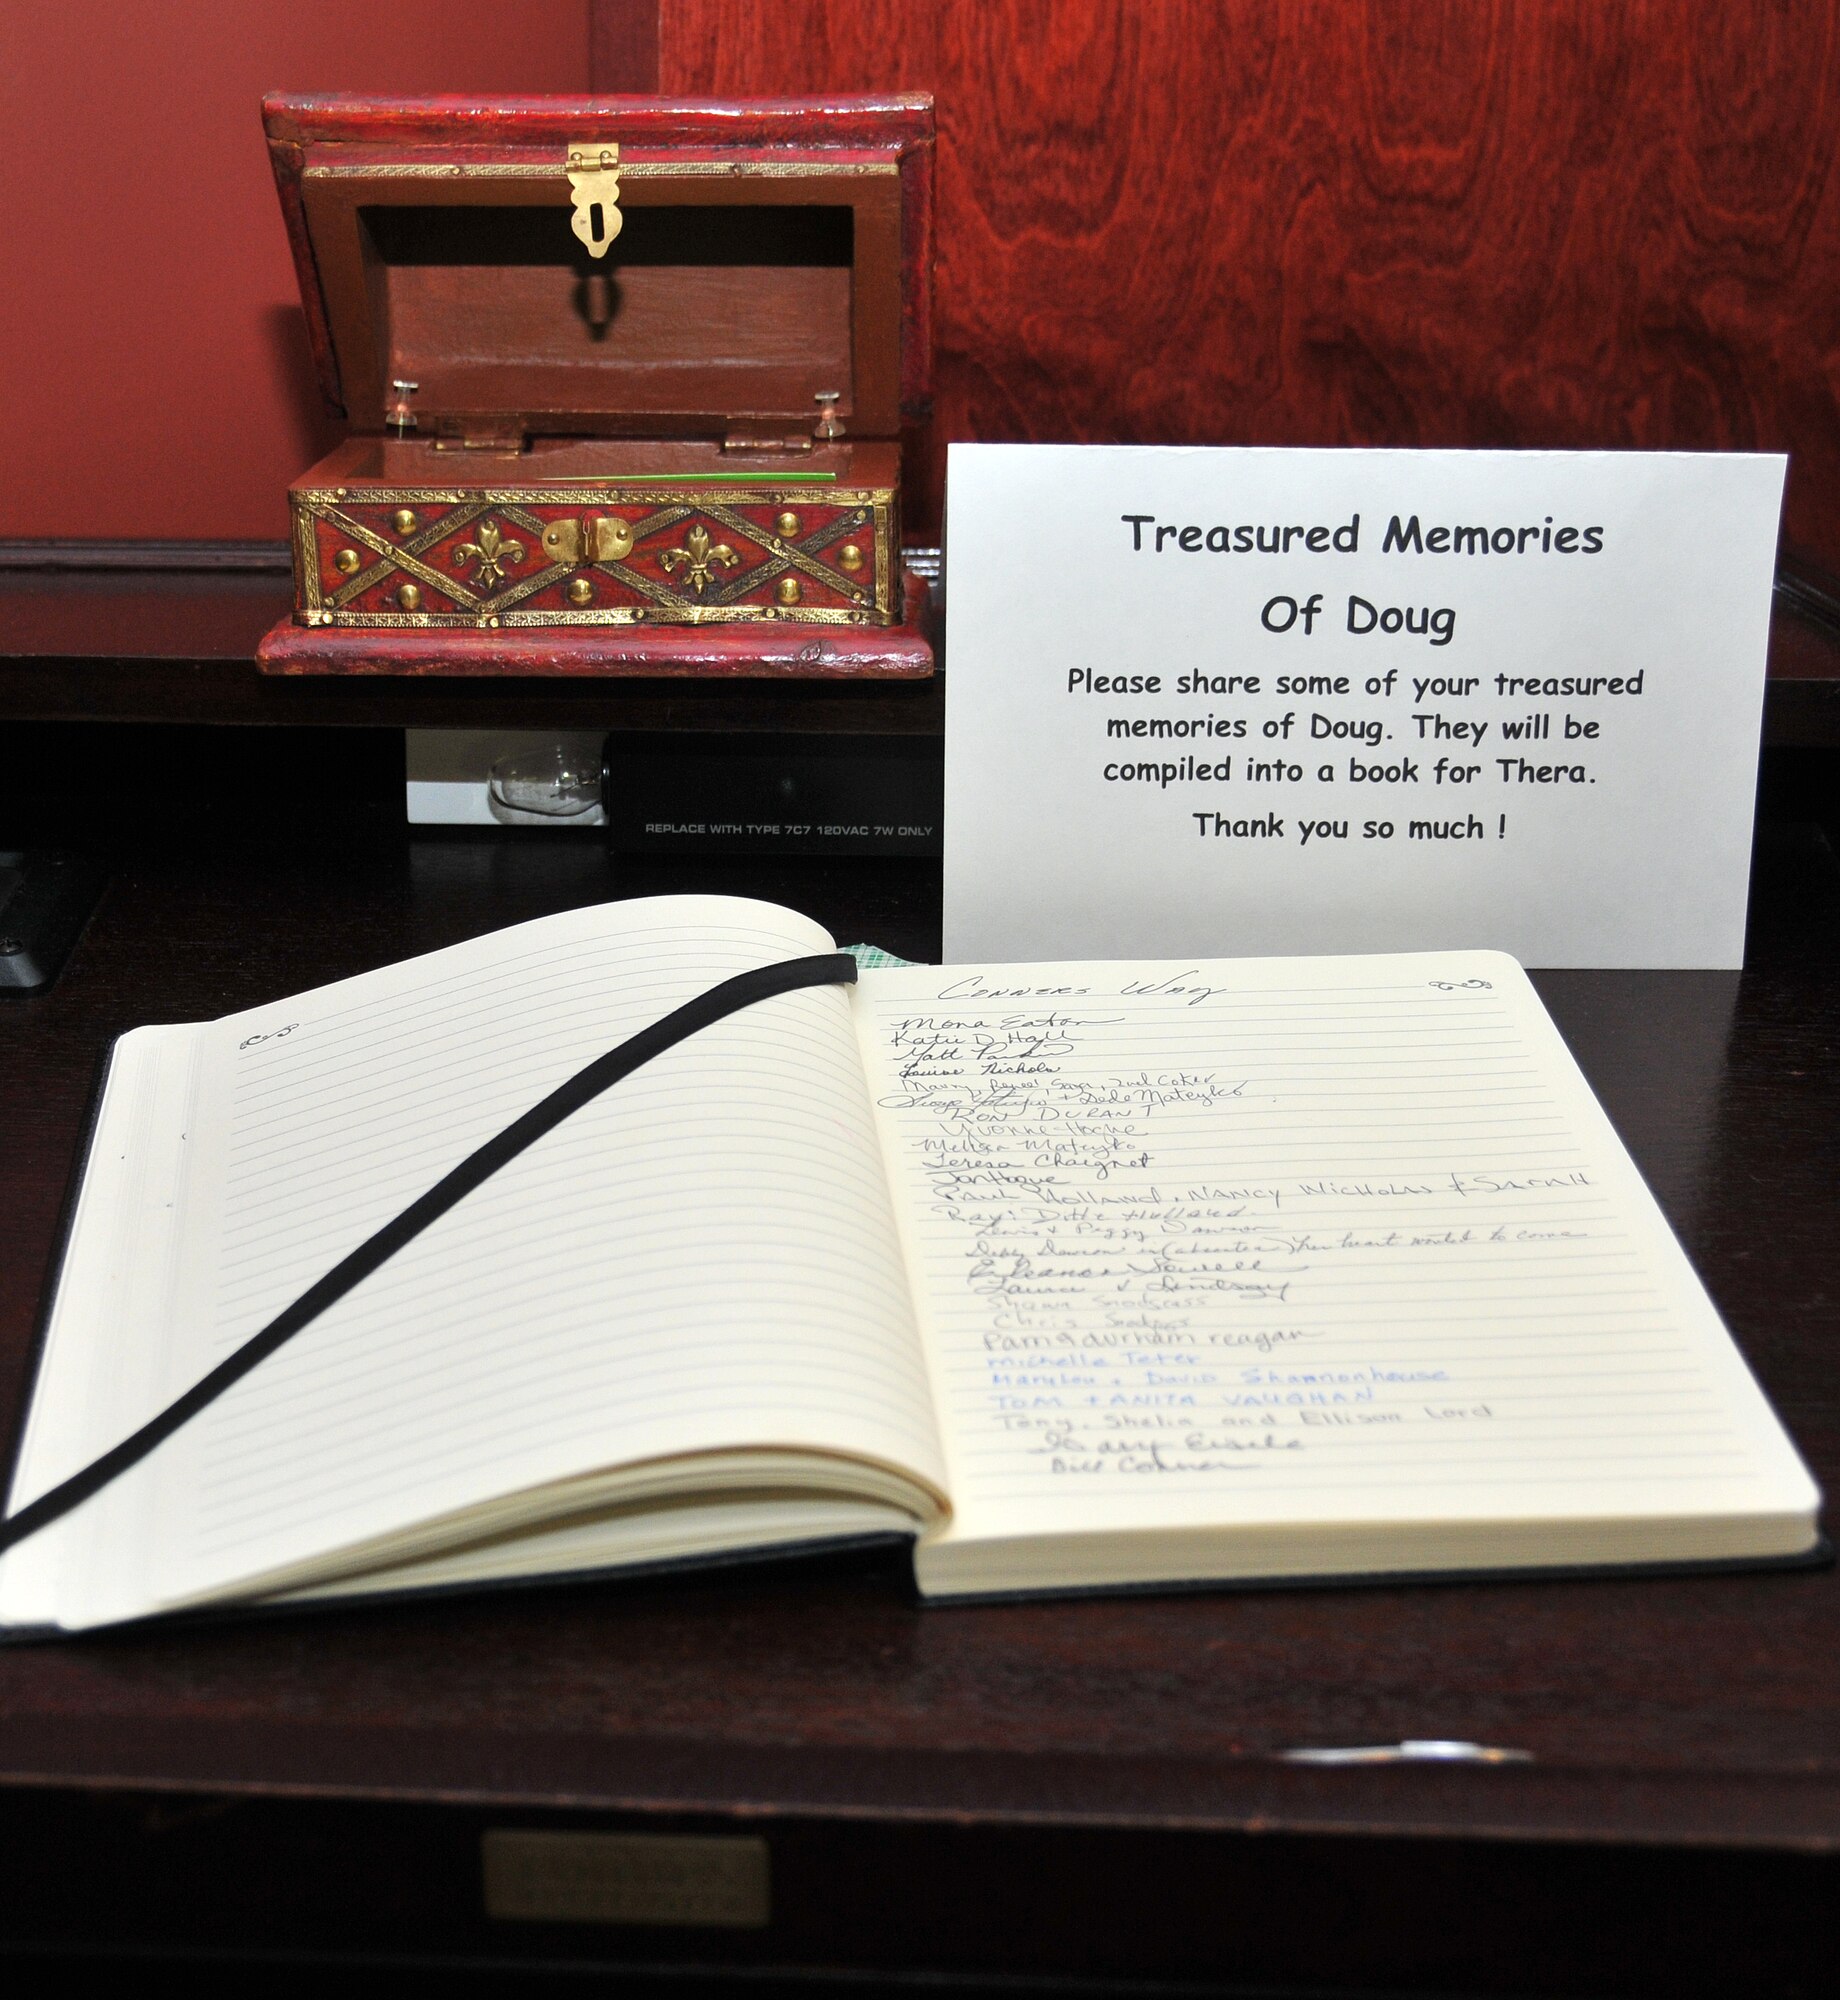 Treasured Memories
Of Doug
Please share some of your treasured
memories of Doug. They will be
compiled into a book for Thera.
Thank you so much !
REPLACE WITH TYPE 7C7 120VAC 7W ONLY
Conners Way
Mona Eaton
Katie D Hall
Matt
Louise Nichols
Coker
+ DeDe Mateyko
RON DURANT
Yvonne Hogue
Melissa Mateyko
Teresa Chaignet
Jan Hogue
PAUL HOLLAND, NANCY NICHOLAS & SARAH
Holland
Lewis & Peggy Dawson
Debby Dawson in (absentee) her heart wanted to come
Eleanor Sowell
Laura & Lindsay
Shawn Snodgrass
Chris
Pam & durham reagan
michelle Teter
Marylou + David Shannonhouse
TOM + ANITA VAUGHAN
Tony, Shelia and Ellison Lord
Bill Conner